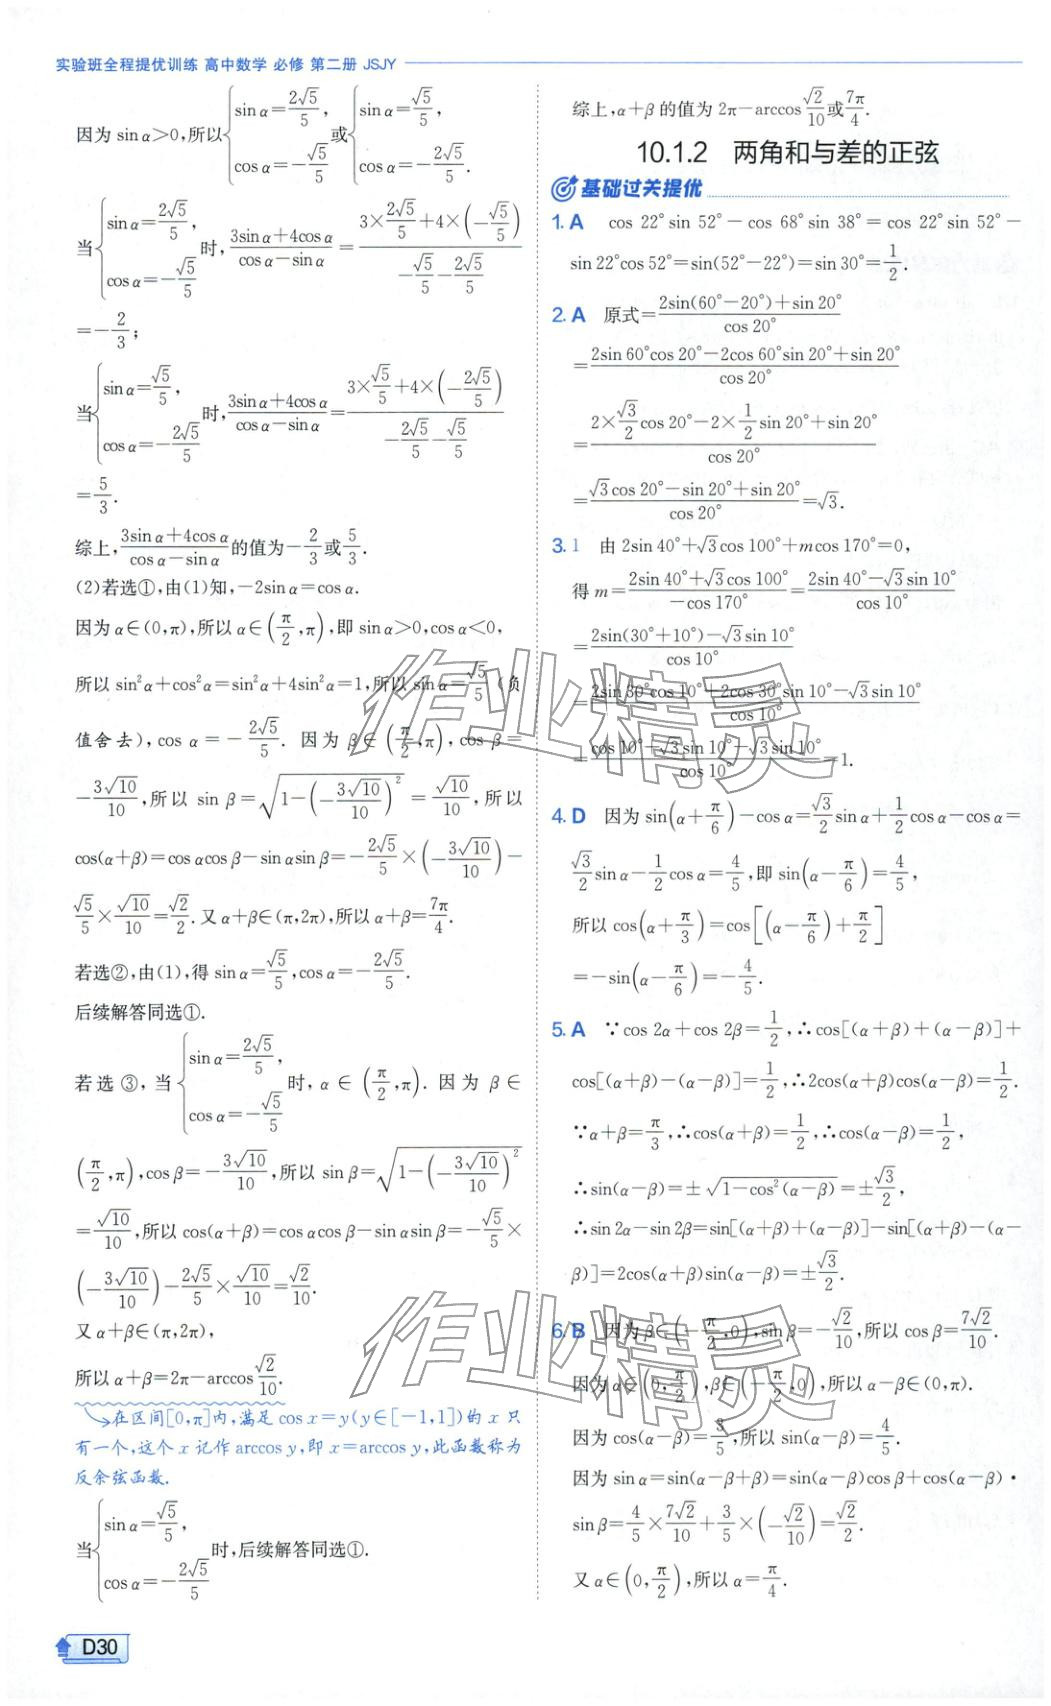 实验班全程提优训练 高中数学 必修 第二册 JSJY
因为 sin α>0,所以{sin α=2√5/5, cos α=-√5/5 或{sin α=√5/5, cos α=-2√5/5.
当{sin α=2√5/5, cos α=-√5/5 时,(3sin α+4cos α)/(cos α-sin α)=(3×2√5/5+4×(-√5/5))/(-√5/5-2√5/5)
=-2/3;
当{sin α=√5/5, cos α=-2√5/5 时,(3sin α+4cos α)/(cos α-sin α)=(3×√5/5+4×(-2√5/5))/(-2√5/5-√5/5)
=5/3.
综上,(3sin α+4cos α)/(cos α-sin α)的值为-2/3或5/3.
(2)若选①,由(1)知,-2sin α=cos α.
因为 α∈(0,π),所以 α∈(π/2,π),即 sin α>0,cos α<0,
所以 sin²α+cos²α=sin²α+4sin²α=1,所以 sin α=√5/5(负
值舍去),cos α=-2√5/5. 因为 β∈(π/2,π),cos β=
-3√10/10,所以 sin β=√(1-(-3√10/10)²)=√10/10,所以
cos(α+β)=cos αcos β-sin αsin β=-2√5/5×(-3√10/10)-
√5/5×√10/10=√2/2. 又 α+β∈(π,2π),所以 α+β=7π/4.
若选②,由(1),得 sin α=√5/5,cos α=-2√5/5.
后续解答同选①.
若选③,当{sin α=2√5/5, cos α=-√5/5 时,α∈(π/2,π). 因为 β∈
(π/2,π),cos β=-3√10/10,所以 sin β=√(1-(-3√10/10)²)
=√10/10,所以 cos(α+β)=cos αcos β-sin αsin β=-√5/5×
(-3√10/10)-2√5/5×√10/10=√2/10.
又 α+β∈(π,2π),
所以 α+β=2π-arccos √2/10.
在区间[0,π]内,满足 cos x=y(y∈[-1,1])的 x 只
有一个,这个 x 记作 arccos y,即 x=arccos y,此函数称为
反余弦函数.
当{sin α=√5/5, cos α=-2√5/5 时,后续解答同选①.
D30
综上,α+β 的值为 2π-arccos √2/10或7π/4.
10.1.2 两角和与差的正弦
基础过关提优
1. A cos 22°sin 52°-cos 68°sin 38°=cos 22°sin 52°-
sin 22°cos 52°=sin(52°-22°)=sin 30°=1/2.
2. A 原式=(2sin(60°-20°)+sin 20°)/cos 20°
=(2sin 60°cos 20°-2cos 60°sin 20°+sin 20°)/cos 20°
=(2×√3/2cos 20°-2×1/2sin 20°+sin 20°)/cos 20°
=(√3cos 20°-sin 20°+sin 20°)/cos 20°=√3.
3. 1 由 2sin 40°+√3cos 100°+mcos 170°=0,
得 m=(2sin 40°+√3cos 100°)/(-cos 170°)=(2sin 40°-√3sin 10°)/cos 10°
=(2sin(30°+10°)-√3sin 10°)/cos 10°
=(2sin 30°cos 10°+2cos 30°sin 10°-√3sin 10°)/cos 10°
=(cos 10°+√3sin 10°-√3sin 10°)/cos 10°=1.
4. D 因为 sin(α+π/6)-cos α=√3/2sin α+1/2cos α-cos α=
√3/2sin α-1/2cos α=4/5,即 sin(α-π/6)=4/5,
所以 cos(α+π/3)=cos[(α-π/6)+π/2]
=-sin(α-π/6)=-4/5.
5. A ∵cos 2α+cos 2β=1/2,∴cos[(α+β)+(α-β)]+
cos[(α+β)-(α-β)]=1/2,∴2cos(α+β)cos(α-β)=1/2.
∵α+β=π/3,∴cos(α+β)=1/2,∴cos(α-β)=1/2,
∴sin(α-β)=±√(1-cos²(α-β))=±√3/2,
∴sin 2α-sin 2β=sin[(α+β)+(α-β)]-sin[(α+β)-(α-
β)]=2cos(α+β)sin(α-β)=±√3/2.
6. B 因为 β∈(-π/2,0),sin β=-√2/10,所以 cos β=7√2/10.
因为 α∈(0,π/2),β∈(-π/2,0),所以 α-β∈(0,π).
因为 cos(α-β)=3/5,所以 sin(α-β)=4/5.
因为 sin α=sin(α-β+β)=sin(α-β)cos β+cos(α-β)·
sin β=4/5×7√2/10+3/5×(-√2/10)=√2/2.
又 α∈(0,π/2),所以 α=π/4.
作业精灵
作业精灵